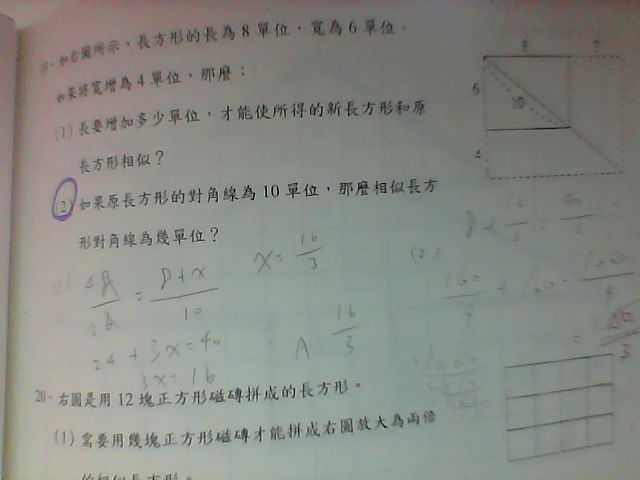 如右圖所示，長方形的長為8單位，寬為6單位。
如果將寬增為4單位，那麼：
(1) 長要增加多少單位，才能使所得的新長方形和原
長方形相似？
(2) 如果原長方形的對角線為10單位，那麼相似長方
形對角線為幾單位？
8 ?
6
10
4
= 8+x
10
x = 16
3
(2)
24 + 3x = 40
3x = 16
A 16
3
20、右圖是用12塊正方形磁磚拼成的長方形。
(1) 需要用幾塊正方形磁磚才能拼成右圖放大為兩倍
的相似長方形。